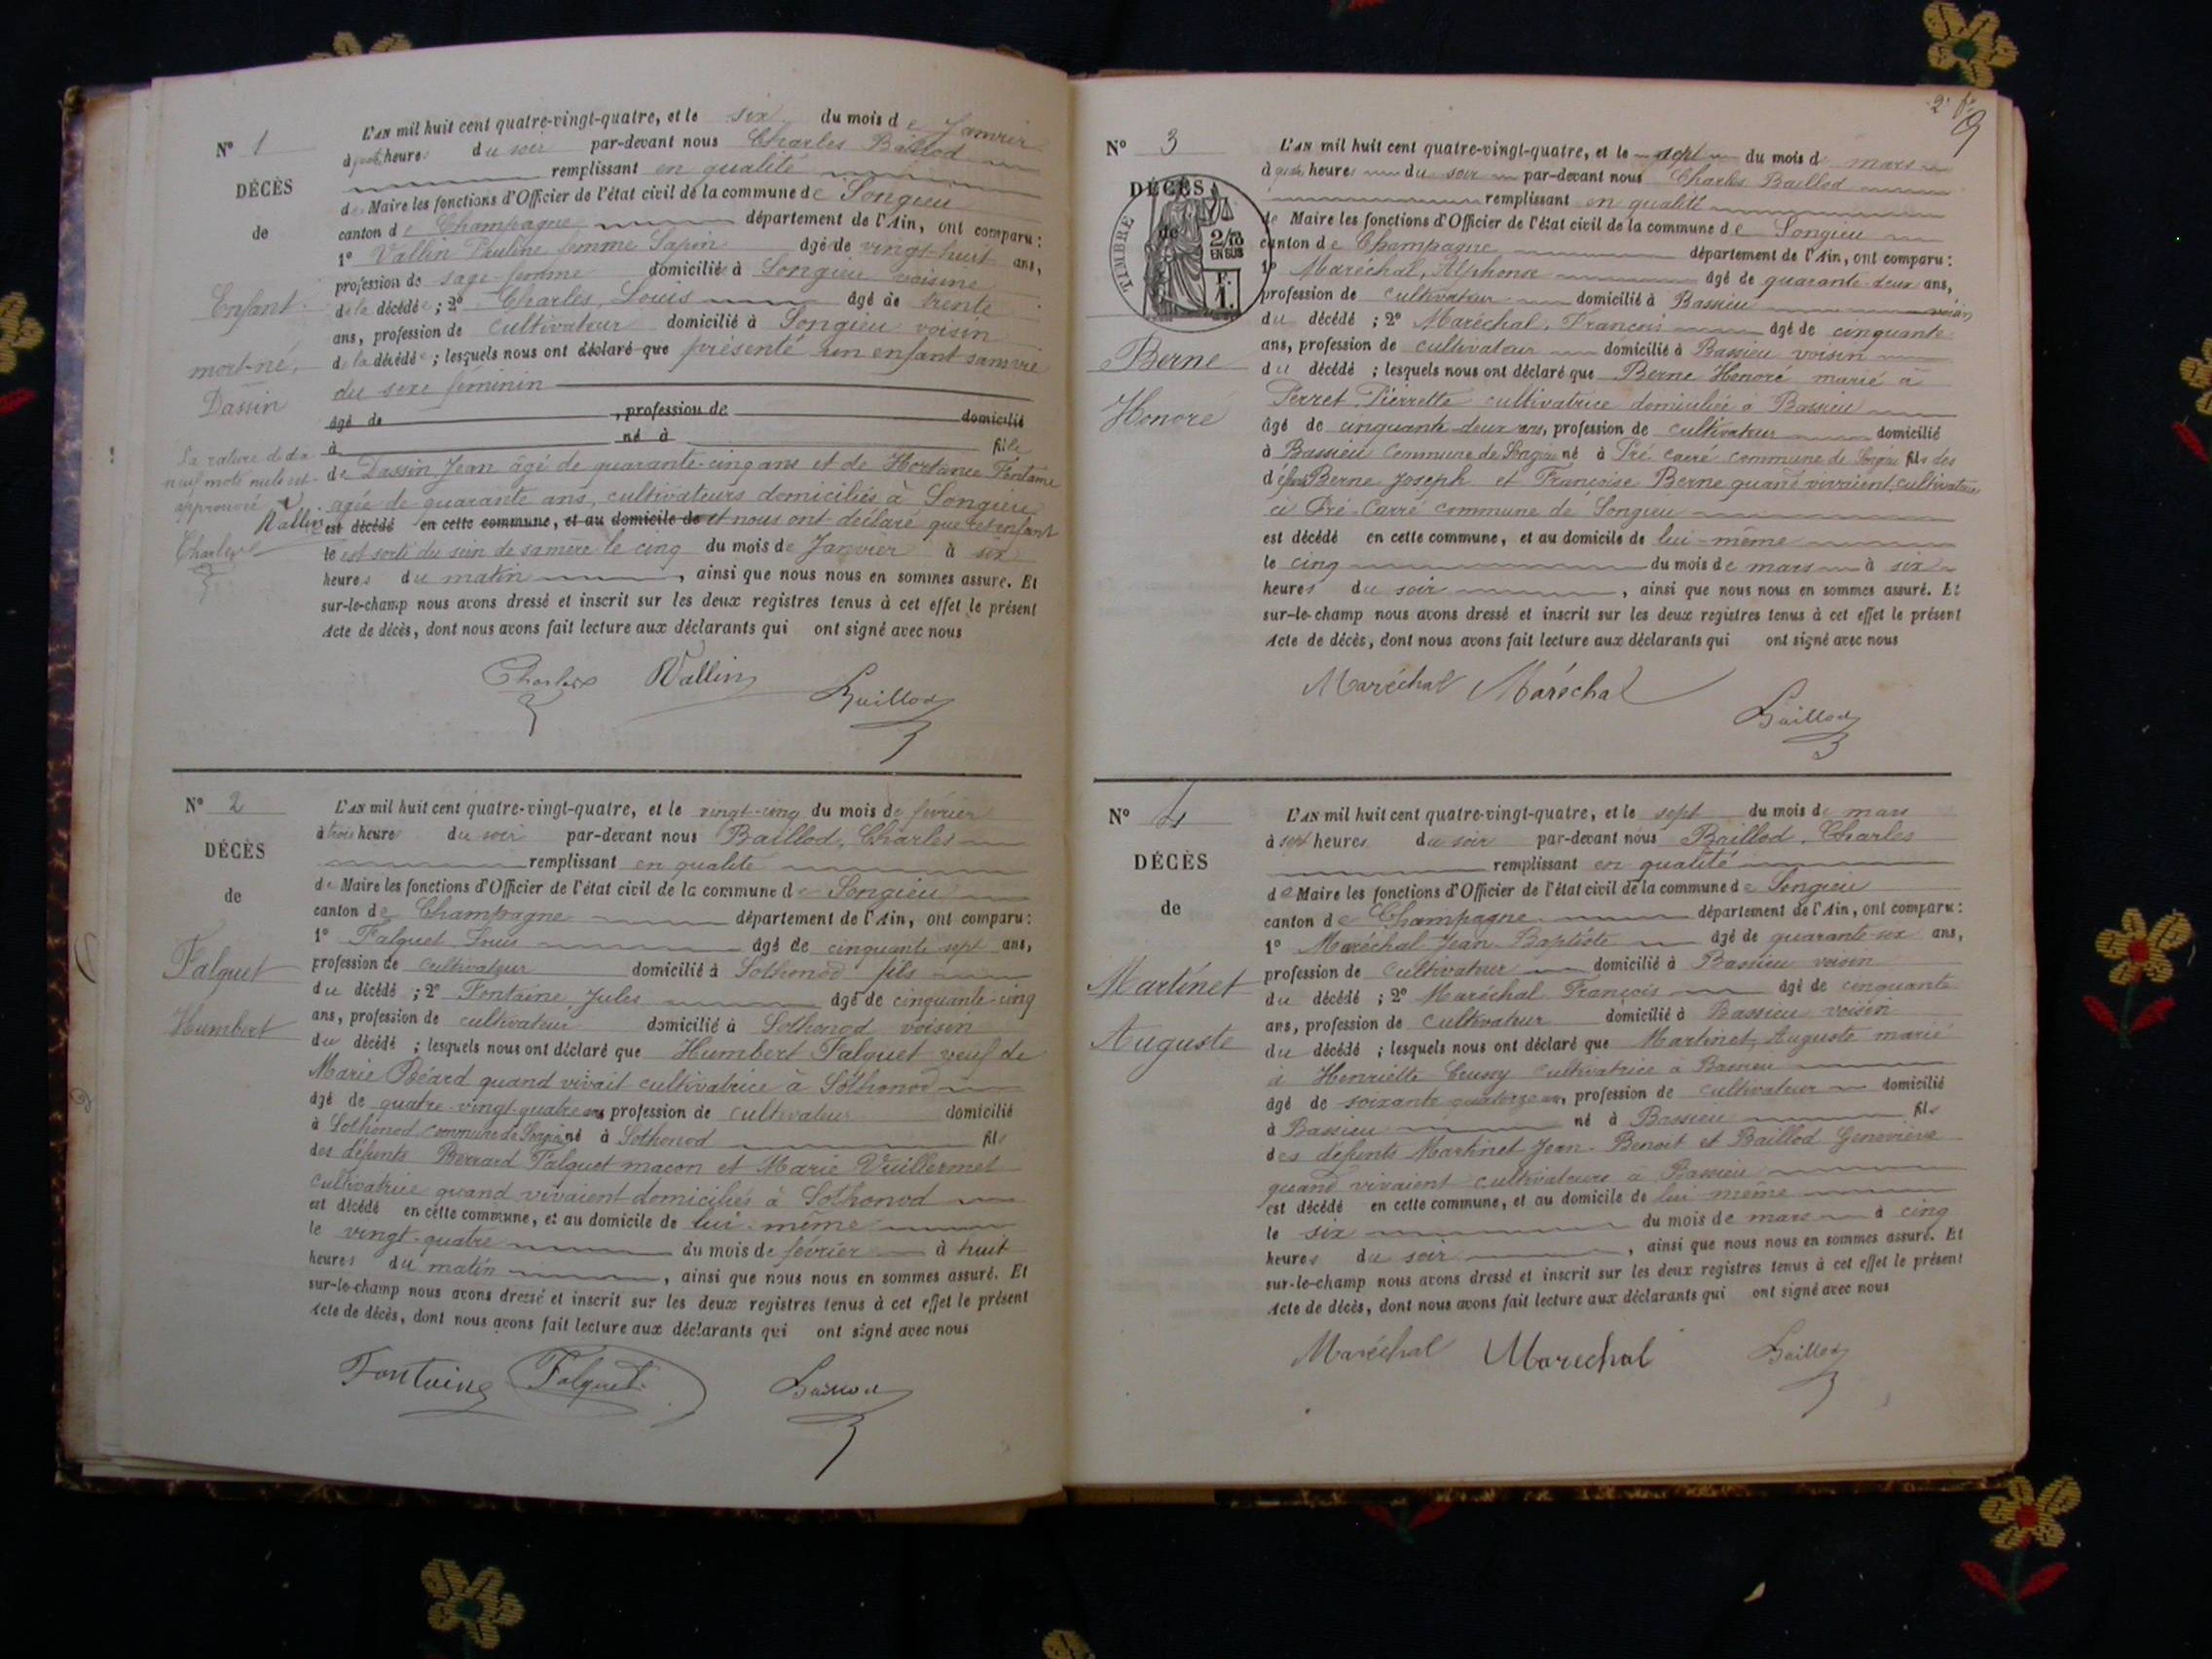 N° 1
DÉCÈS
de
Enfant
mort-né,
Dassin
La rature de da
neuf mots nuls est
approuvée
Vallin
Charles
L'AN mil huit cent quatre-vingt-quatre, et le six du mois de Janvier
à heures du soir par-devant nous Charles Baillod
remplissant en qualité
de Maire les fonctions d'Officier de l'état civil de la commune de Songieu
canton de Champagne département de l'Ain, ont comparu :
1° Vallin Pauline femme Sapin âgé de vingt-huit ans,
profession de sage-femme domicilié à Songieu voisine
de la décédée ; 2° Charles, Louis âgé de trente
ans, profession de cultivateur domicilié à Songieu voisin
de la décédée ; lesquels nous ont déclaré que présenté un enfant sans vie
du sexe féminin
âgé de , profession de domicilié
à né à fille
de Dassin Jean âgé de quarante-cinq ans et de Hortense Fontaine
agée de quarante ans, cultivateurs domiciliés à Songieu
est décédé en cette commune, et au domicile de et nous ont déclaré que cet enfant
le est sorti du sein de sa mère le cinq du mois de Janvier à six
heures du matin , ainsi que nous nous en sommes assuré. Et
sur-le-champ nous avons dressé et inscrit sur les deux registres tenus à cet effet le présent
Acte de décès, dont nous avons fait lecture aux déclarants qui ont signé avec nous
Charles Vallin Baillod
N° 2
DÉCÈS
de
Falquet
Humbert
L'AN mil huit cent quatre-vingt-quatre, et le vingt-cinq du mois de février
à trois heures du soir par-devant nous Baillod, Charles
remplissant en qualité
de Maire les fonctions d'Officier de l'état civil de la commune de Songieu
canton de Champagne département de l'Ain, ont comparu :
1° Falquet Louis âgé de cinquante sept ans,
profession de cultivateur domicilié à Sothonod fils
du décédé ; 2° Fontaine Jules âgé de cinquante-cinq
ans, profession de cultivateur domicilié à Sothonod voisin
du décédé ; lesquels nous ont déclaré que Humbert Falquet veuf de
Marie Béard quand vivait cultivatrice à Sothonod
âgé de quatre-vingt-quatre ans profession de cultivateur domicilié
à Sothonod, commune de Songieu né à Sothonod fils
des défunts Berrard Falquet maçon et Marie Vuillermet
cultivatrice quand vivaient domiciliés à Sothonod
est décédé en cette commune, et au domicile de lui-même
le vingt-quatre du mois de février à huit
heures du matin , ainsi que nous nous en sommes assuré. Et
sur-le-champ nous avons dressé et inscrit sur les deux registres tenus à cet effet le présent
Acte de décès, dont nous avons fait lecture aux déclarants qui ont signé avec nous
Fontaine Falquet Baillod
2e
9
N° 3
DÉCÈS
de
TIMBRE
2/10 EN SUS
F. 1.
Berne
Honoré
L'AN mil huit cent quatre-vingt-quatre, et le sept du mois de mars
à heures du soir par-devant nous Charles Baillod
remplissant en qualité
de Maire les fonctions d'Officier de l'état civil de la commune de Songieu
canton de Champagne département de l'Ain, ont comparu :
1° Maréchal, Alphonse âgé de quarante-deux ans,
profession de cultivateur domicilié à Bassieu voisin
du décédé ; 2° Maréchal, François âgé de cinquante
ans, profession de cultivateur domicilié à Bassieu voisin
du décédé ; lesquels nous ont déclaré que Berne Honoré marié à
Perret Pierrette cultivatrice domiciliée à Bassieu
âgé de cinquante-deux ans, profession de cultivateur domicilié
à Bassieu Commune de Songieu né à Pré carré commune de Songieu fils des
défunts Berne Joseph et Françoise Berne quand vivaient cultivateurs
à Pré-Carré commune de Songieu
est décédé en cette commune, et au domicile de lui-même
le cinq du mois de mars à six
heures du soir , ainsi que nous nous en sommes assuré. Et
sur-le-champ nous avons dressé et inscrit sur les deux registres tenus à cet effet le présent
Acte de décès, dont nous avons fait lecture aux déclarants qui ont signé avec nous
Maréchal Maréchal
Baillod
N° 4
DÉCÈS
de
Martinet
Auguste
L'AN mil huit cent quatre-vingt-quatre, et le sept du mois de mars
à sept heures du soir par-devant nous Baillod, Charles
remplissant en qualité
de Maire les fonctions d'Officier de l'état civil de la commune de Songieu
canton de Champagne département de l'Ain, ont comparu :
1° Maréchal Jean-Baptiste âgé de quarante-six ans,
profession de cultivateur domicilié à Bassieu voisin
du décédé ; 2° Maréchal François âgé de cinquante
ans, profession de cultivateur domicilié à Bassieu voisin
du décédé ; lesquels nous ont déclaré que Martinet, Auguste marié
à Henriette cultivatrice à Bassieu
âgé de soixante quatorze ans, profession de cultivateur domicilié
à Bassieu né à Bassieu fils
des défunts Martinet Jean-Benoit et Baillod Geneviève
quand vivaient cultivateurs à Bassieu
est décédé en cette commune, et au domicile de lui même
le six du mois de mars à cinq
heures du soir , ainsi que nous nous en sommes assuré. Et
sur-le-champ nous avons dressé et inscrit sur les deux registres tenus à cet effet le présent
Acte de décès, dont nous avons fait lecture aux déclarants qui ont signé avec nous
Maréchal Marechal Baillod